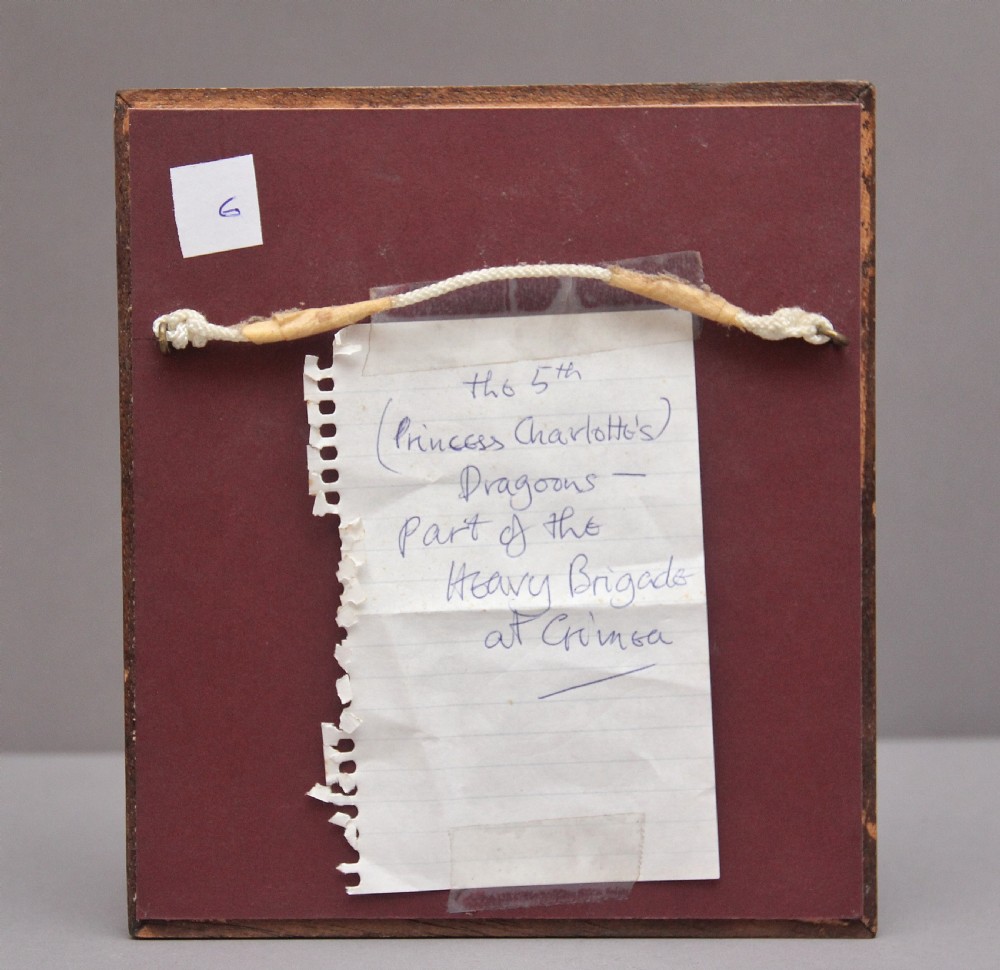 6
the 5th
(Princess Charlotte's)
Dragoons —
Part of the
Heavy Brigade
at Crimea